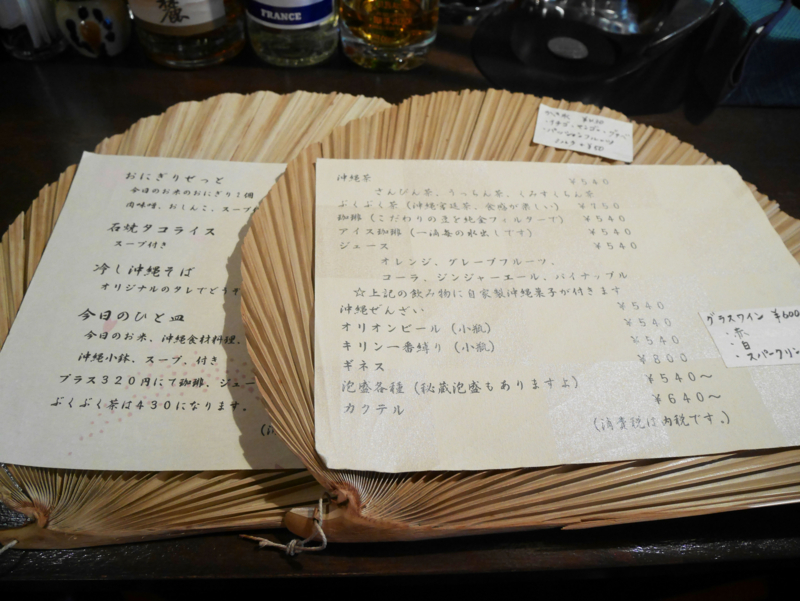 FRANCE
おにぎりせっと
今日のお米のおにぎり2個
肉味噌、おしんこ、スープ
石焼タコライス
スープ付き
冷し沖縄そば
オリジナルのタレでどうぞ
今日のひと皿
今日のお米、沖縄食材料理、
沖縄小鉢、スープ、付き
プラス320円にて珈琲、ジュー
ぶくぶく茶は430になります。
沖縄茶 ¥540
さんぴん茶、うっちん茶、くみすくちん茶
ぶくぶく茶(沖縄宮廷茶、食感が楽しい) ¥750
珈琲(こだわりの豆と純金フィルターで) ¥540
アイス珈琲(一滴毎の水出しです) ¥540
ジュース ¥540
オレンジ、グレープフルーツ、
コーラ、ジンジャーエール、パイナップル
☆上記の飲み物に自家製沖縄菓子が付きます
沖縄ぜんざい ¥540
オリオンビール(小瓶) ¥540
キリン一番搾り(小瓶) ¥540
ギネス ¥800
泡盛各種(秘蔵泡盛もありますよ) ¥540～
カクテル ¥640～
(消費税は内税です。)
グラスワイン ¥600
・赤
・白
・スパークリン